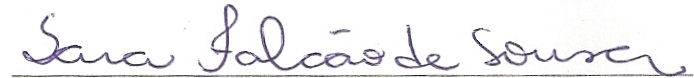 Sara Falcão de Sousa